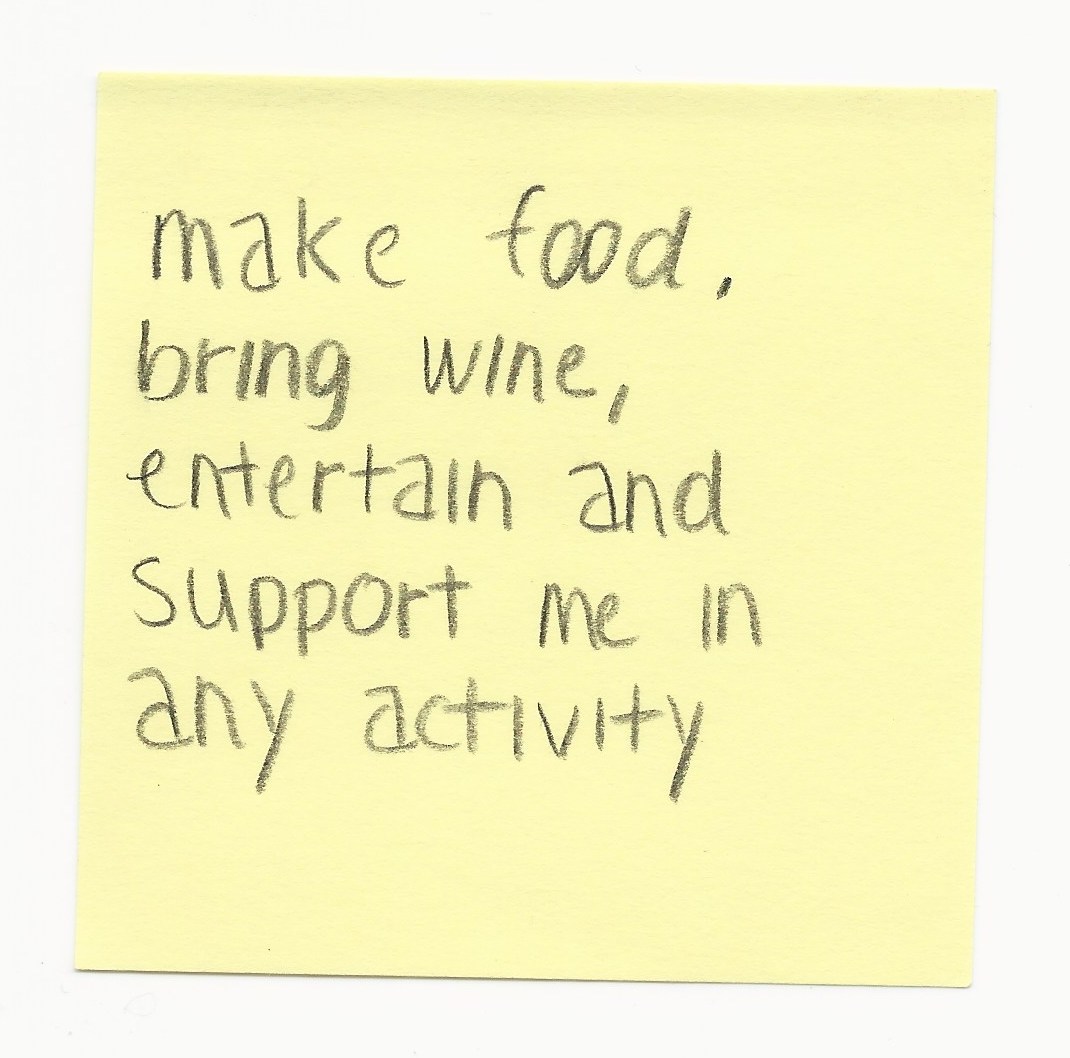 make food,
bring wine,
entertain and
support me in
any activity